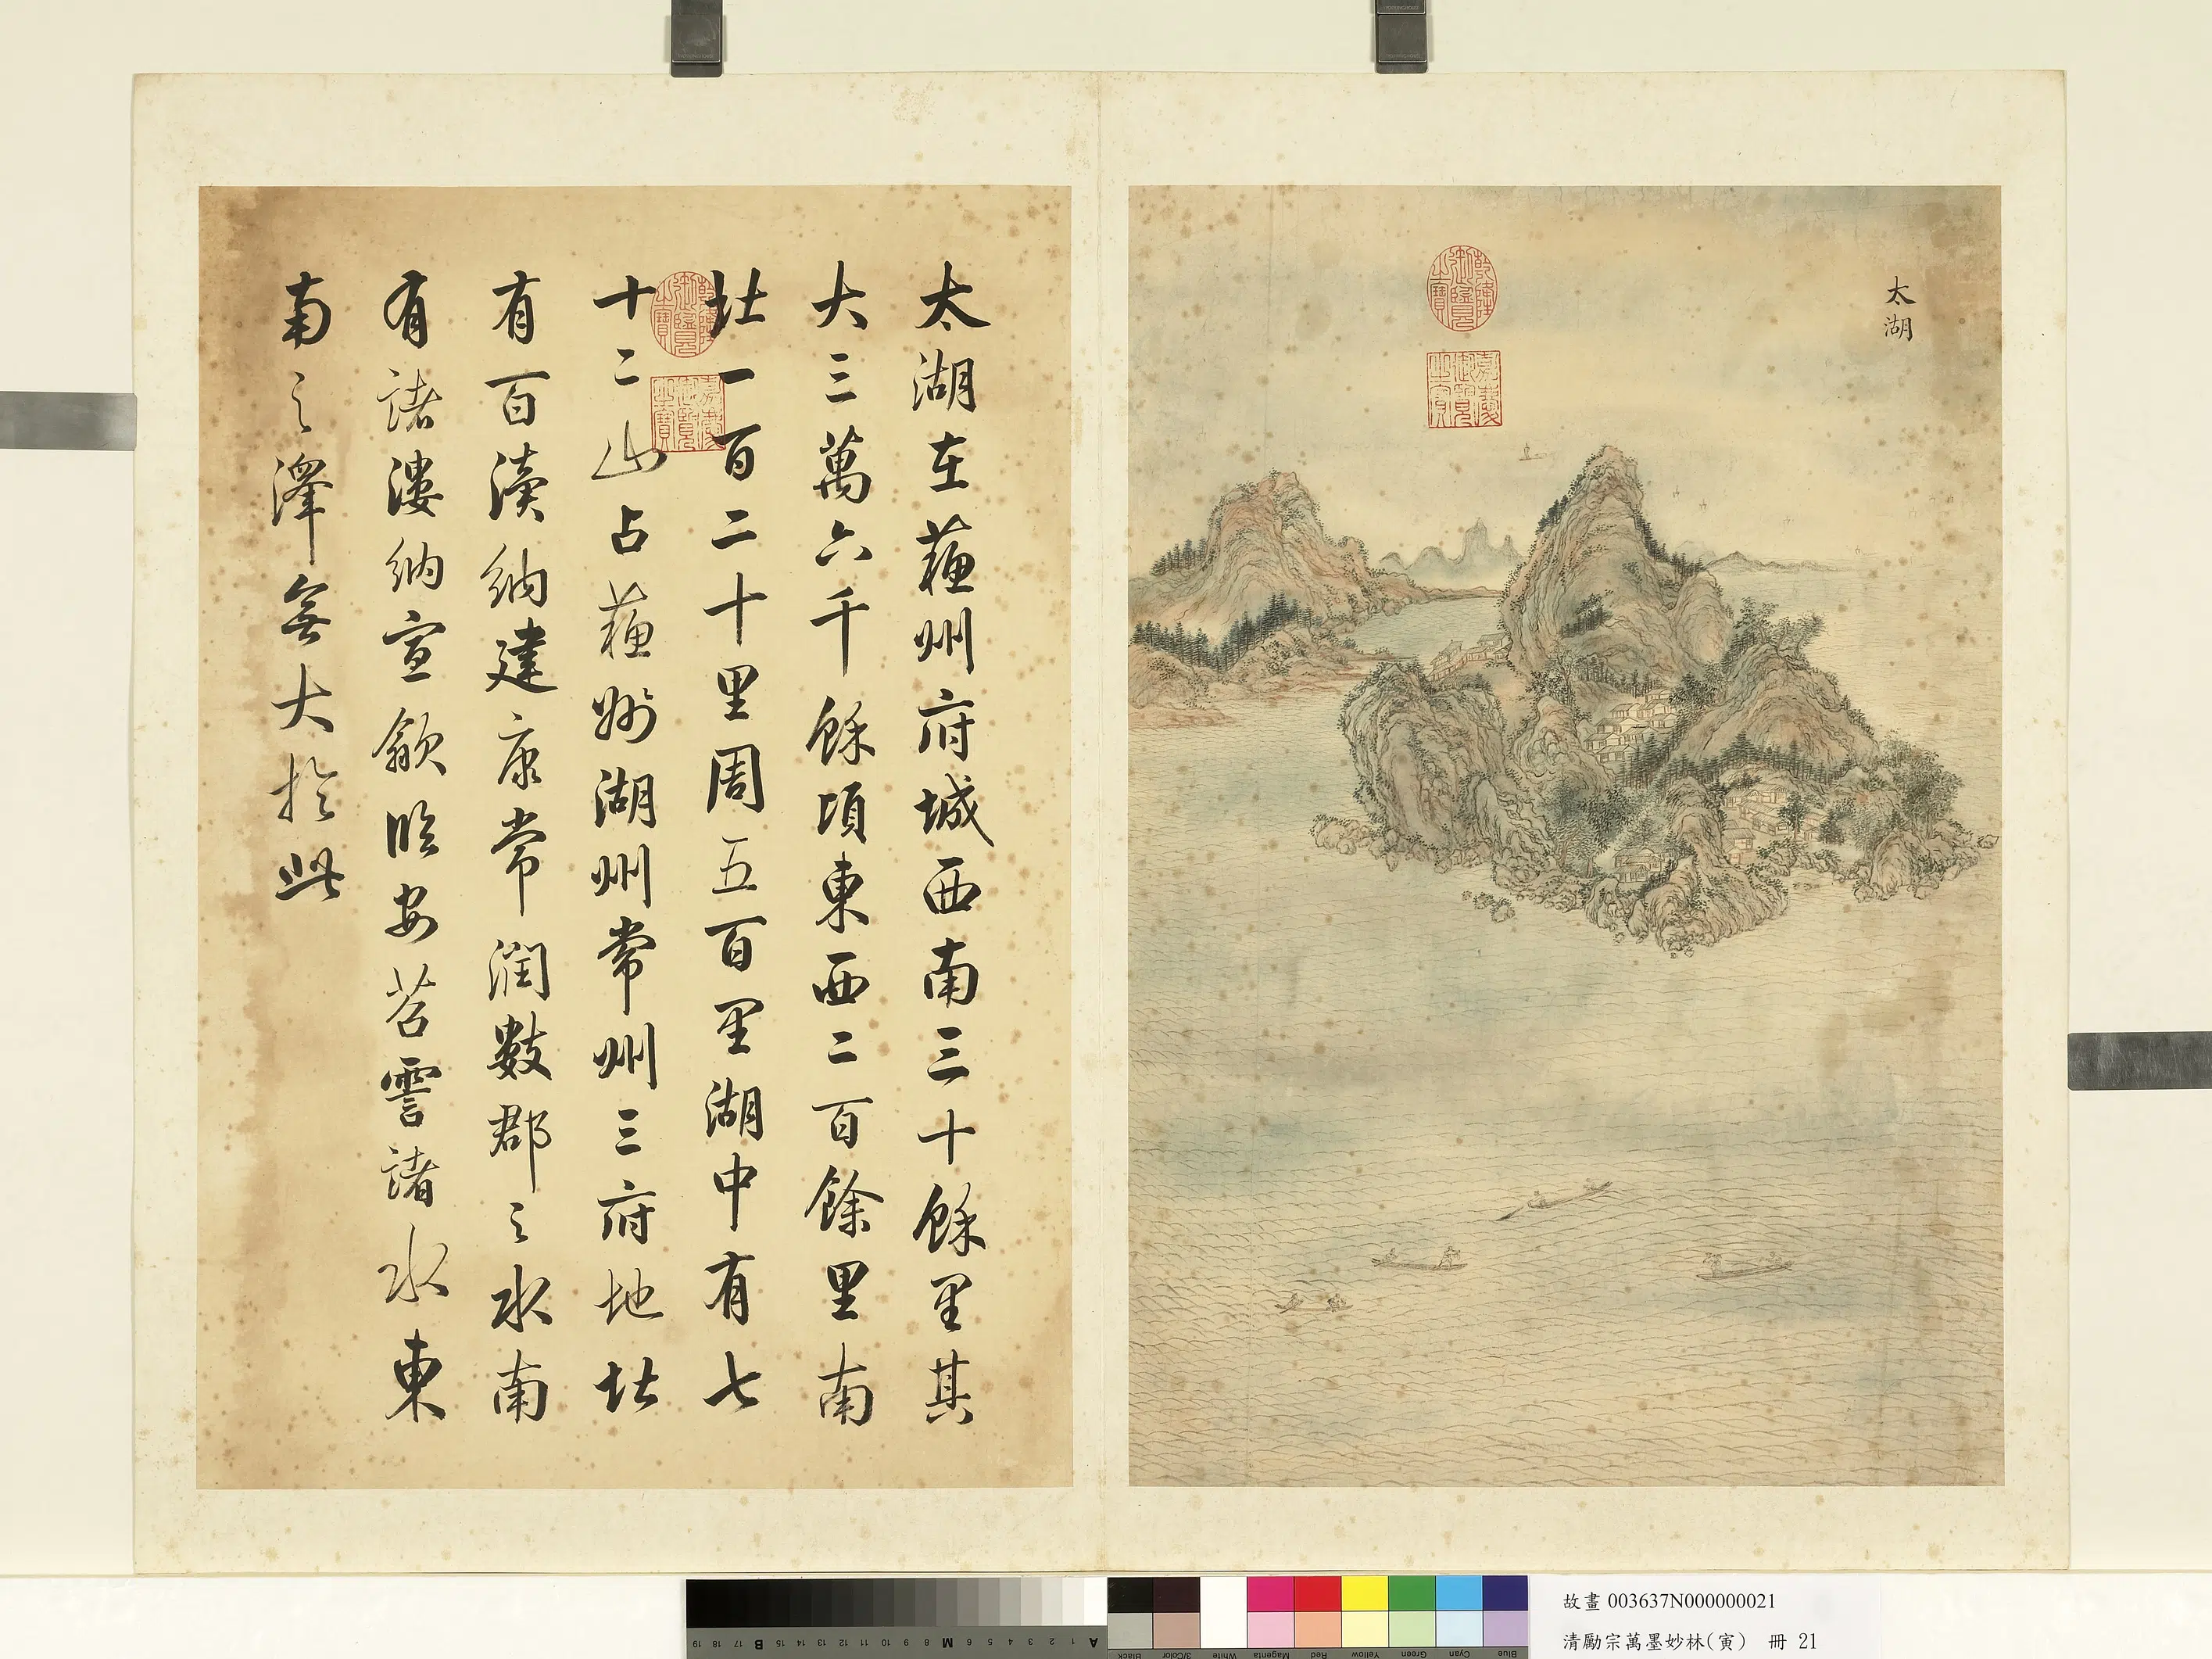 太湖
乾隆御覽之寶
嘉慶御覽之寶
太湖在蘓州府城西南三十餘里其
大三萬六千餘頃東西二百餘里南
北一百二十里周五百里湖中有七
十二山占蘓州湖州常州三府地北
有百瀆納建康常潤數郡之水南
有諸漊納宣歙臨安苕霅諸水東
南之澤無大於此
乾隆御覽之寶
嘉慶御覽之寶
19 18 17 B 15 14 13 12 11 10 9 8 M 6 5 4 3 2 1 A
Black 3/Color White Magenta Red Yellow Green Cyan Blue
故畫 003637N000000021
清勵宗萬墨妙林(寅) 冊 21